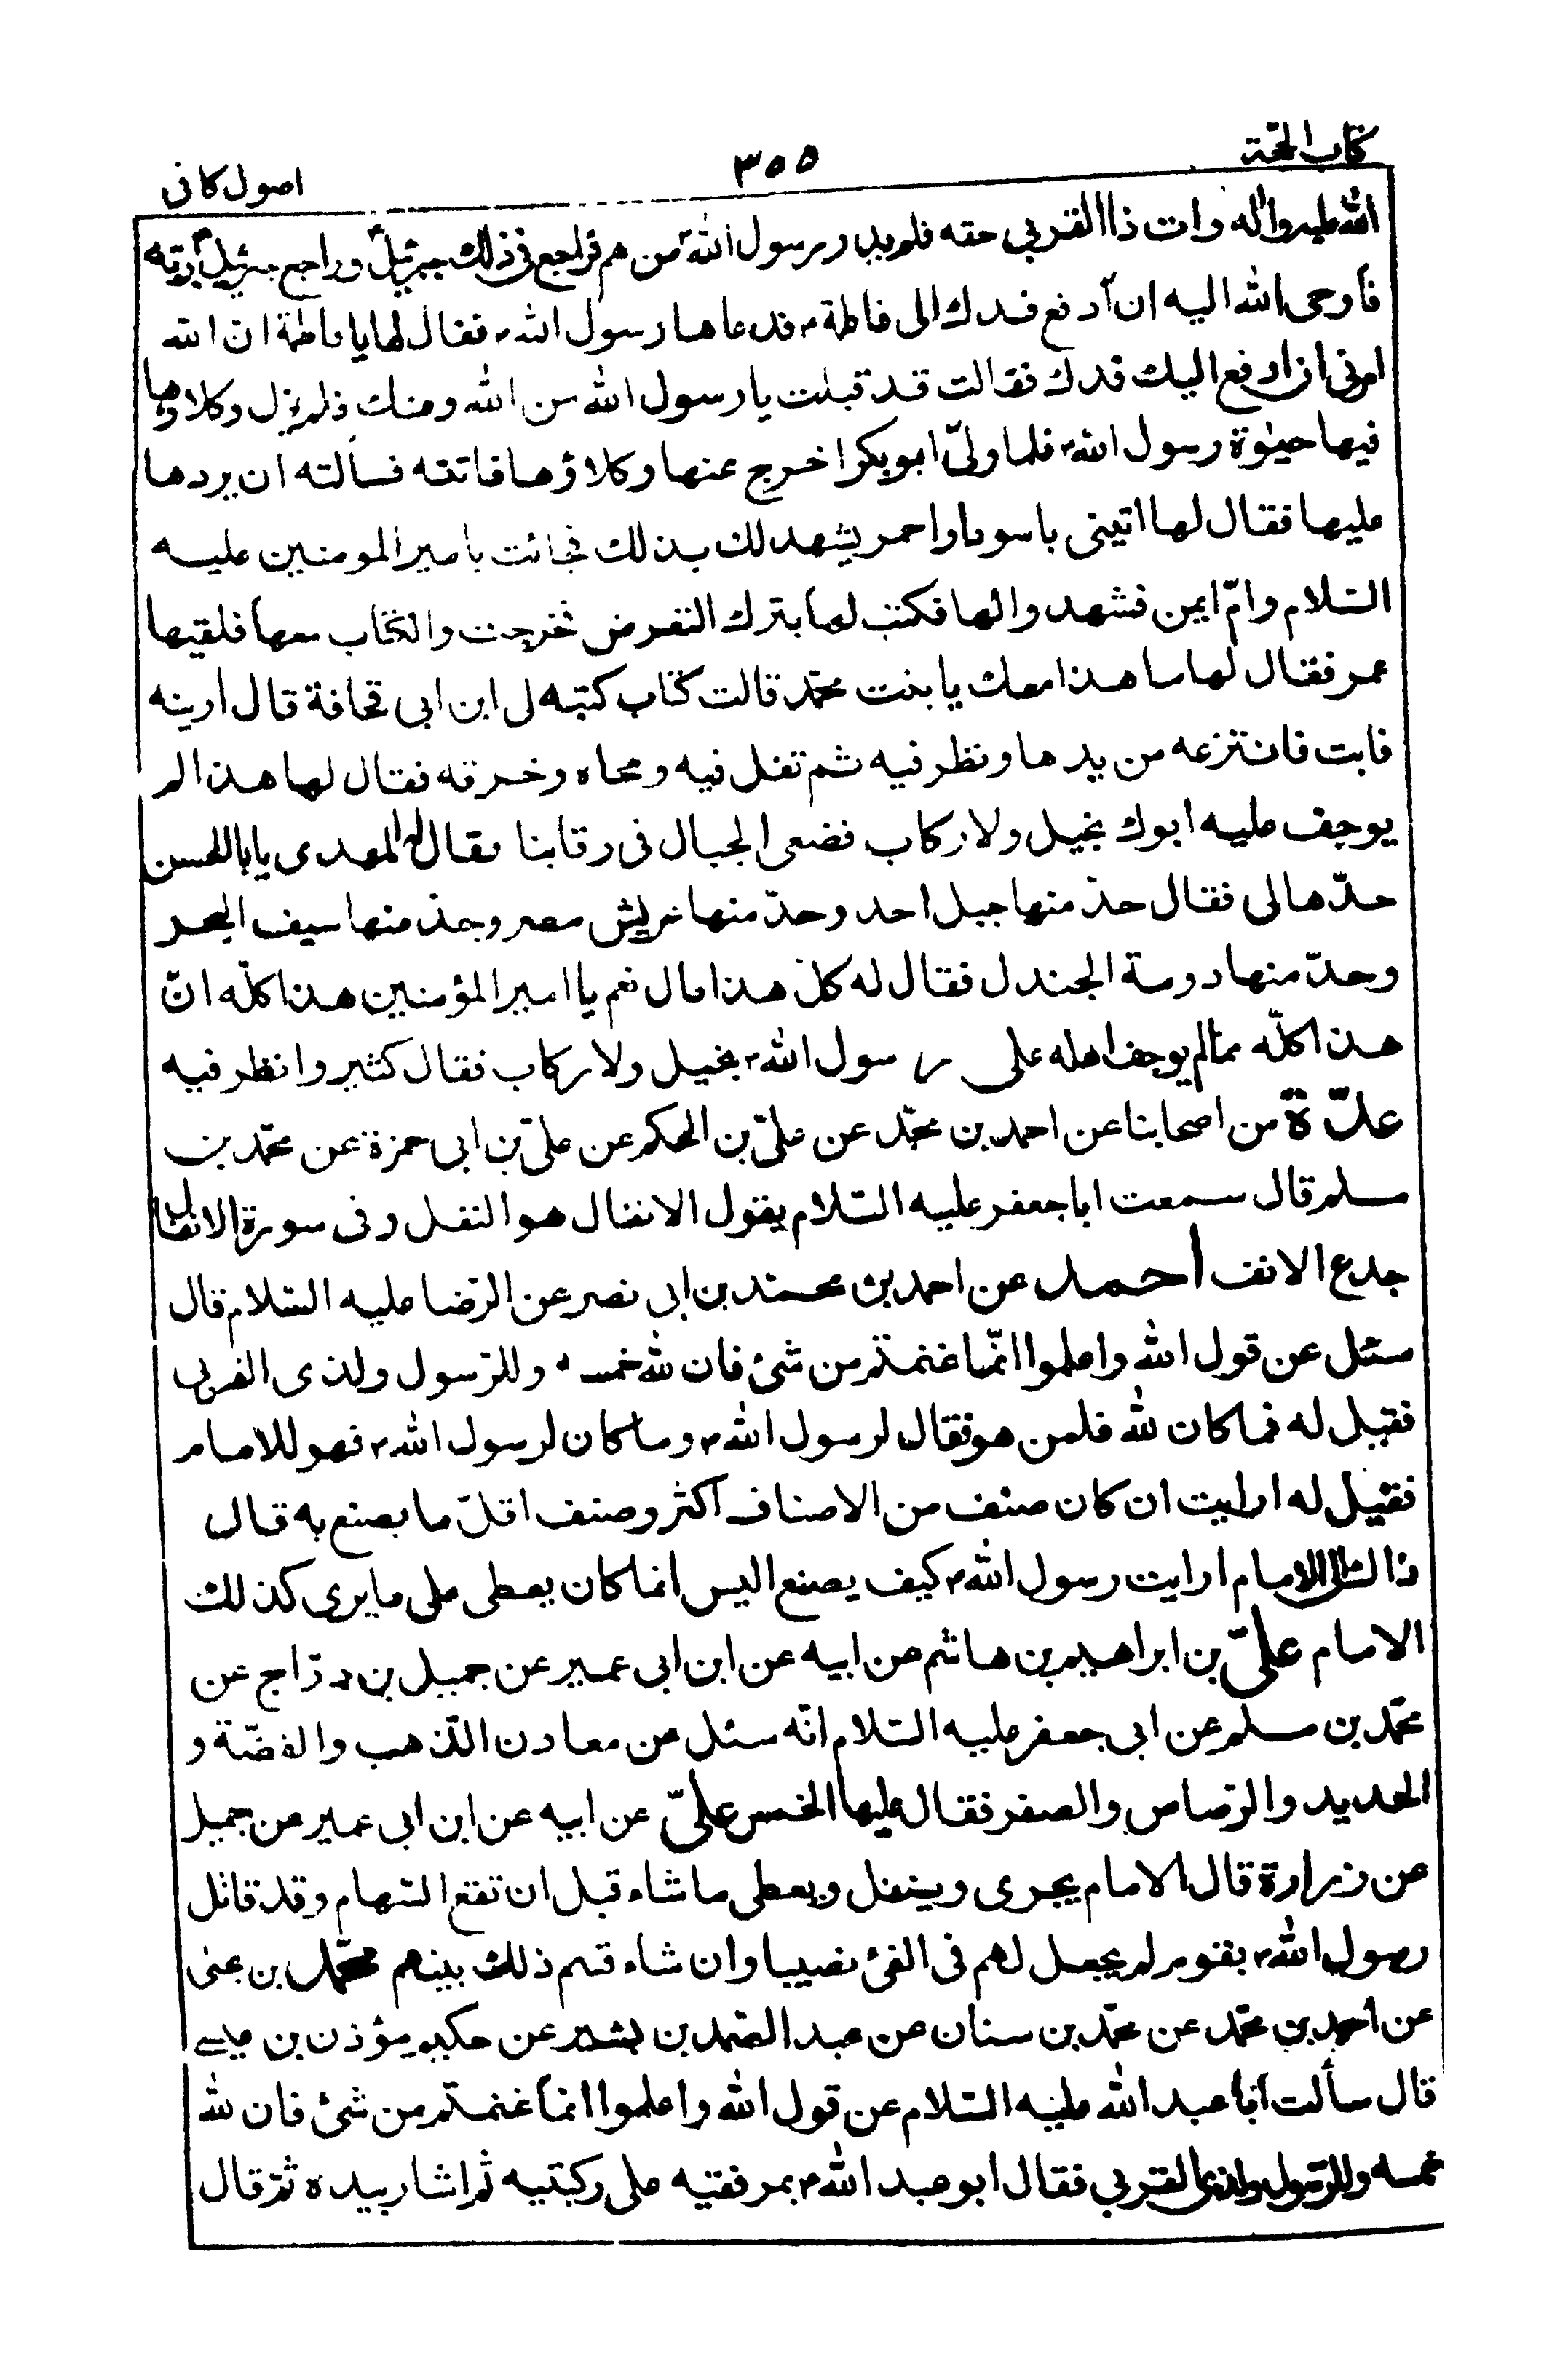 كتاب الحجة
٣٥٥
اصول كافى
الله عليه واله وات ذا القربى حقه فلم يدر رسول الله ص من هم فراجع فى ذلك جبرئيل وراجع جبرئيل ربه
فاوحى الله اليه ان ادفع فدك الى فاطمة فدعاها رسول الله فقال لها يا فاطمة ان الله
امرنى ان ادفع اليك فدك فقالت قد قبلت يا رسول الله من الله ومنك فلم يزل وكلاوها
فيها حيٰوة رسول الله فلما ولىّ ابو بكر اخرج عنها وكلاؤها فاتته فسألته ان يردها
عليها فقال لها ائتينى باسود او احمر يشهد لك بذلك فجائت بامير المومنين عليه
السّلام وامّ ايمن فشهدوا لها فكتب لها بترك التعرض فخرجت والكتاب معها فلقيها
عمر فقال لها ما هذا معك يا بنت محمّد قالت كتاب كتبه لى ابن ابى قحافة قال ارينه
فابت فانتزعه من يدها ونظر فيه ثم تفل فيه ومحاه وخرقه فقال لها هذا لم
يوجف عليه ابوك بخيل ولا ركاب فضعى الجبال فى رقابنا فقال له المهدى يا ابا الحسن
حدّها لى فقال حدّ منها جبل احد وحدّ منها عريش مصر وحدّ منها سيف البحر
وحدّ منها دومة الجندل فقال له كلّ هذا قال نعم يا امير المؤمنين هذا كلّه انّ
هذا كلّه ممّا لم يوجف اهله على رسول الله بخيل ولا ركاب فقال كثير وانظر فيه
عدّة من اصحابنا عن احمد بن محمّد عن علىّ بن الحكم عن علىّ بن ابى حمزة عن محمّد بن
مسلم قال سمعت ابا جعفر عليه السّلام يقول الانفال هو النفل وفى سورة الانفال
جدع الانف احمد عن احمد بن محمّد بن ابى نصر عن الرّضا عليه السّلام قال
سئل عن قول الله واعلموا انّما غنمتم من شئ فان لله خمسه وللرّسول ولذى القربى
فقيل له فما كان لله فلمن هو فقال لرسول الله وما كان لرسول الله فهو للامام
فقيل له ارايت ان كان صنف من الاصناف اكثر وصنف اقلّ ما يصنع به قال
ذاك الى الامام ارايت رسول الله كيف يصنع اليس انما كان يعطى على ما يرى كذلك
الامام علىّ بن ابراهيم بن هاشم عن ابيه عن ابن ابى عمير عن جميل بن درّاج عن
محمّد بن مسلم عن ابى جعفر عليه السّلام انّه سئل عن معادن الذّهب والفضّة و
الحديد والرّصاص والصفر فقال عليها الخمس علىّ عن ابيه عن ابن ابى عمير عن جميل
عن زرارة قال الامام يجرى وينفل ويعطى ما شاء قبل ان تقع السّهام وقد قاتل
رسول الله بقوم لم يجعل لهم فى الفئ نصيبا وان شاء قسم ذلك بينهم محمّد بن يحيى
عن احمد بن محمّد عن محمّد بن سنان عن عبد الصّمد بن بشير عن حكيم مؤذن بن عيسى
قال سألت ابا عبد الله عليه السّلام عن قول الله واعلموا انما غنمتم من شئ فان لله
خمسه وللرّسول ولذى القربى فقال ابو عبد الله بمرفقيه على ركبتيه ثم اشار بيده ثمّ قال